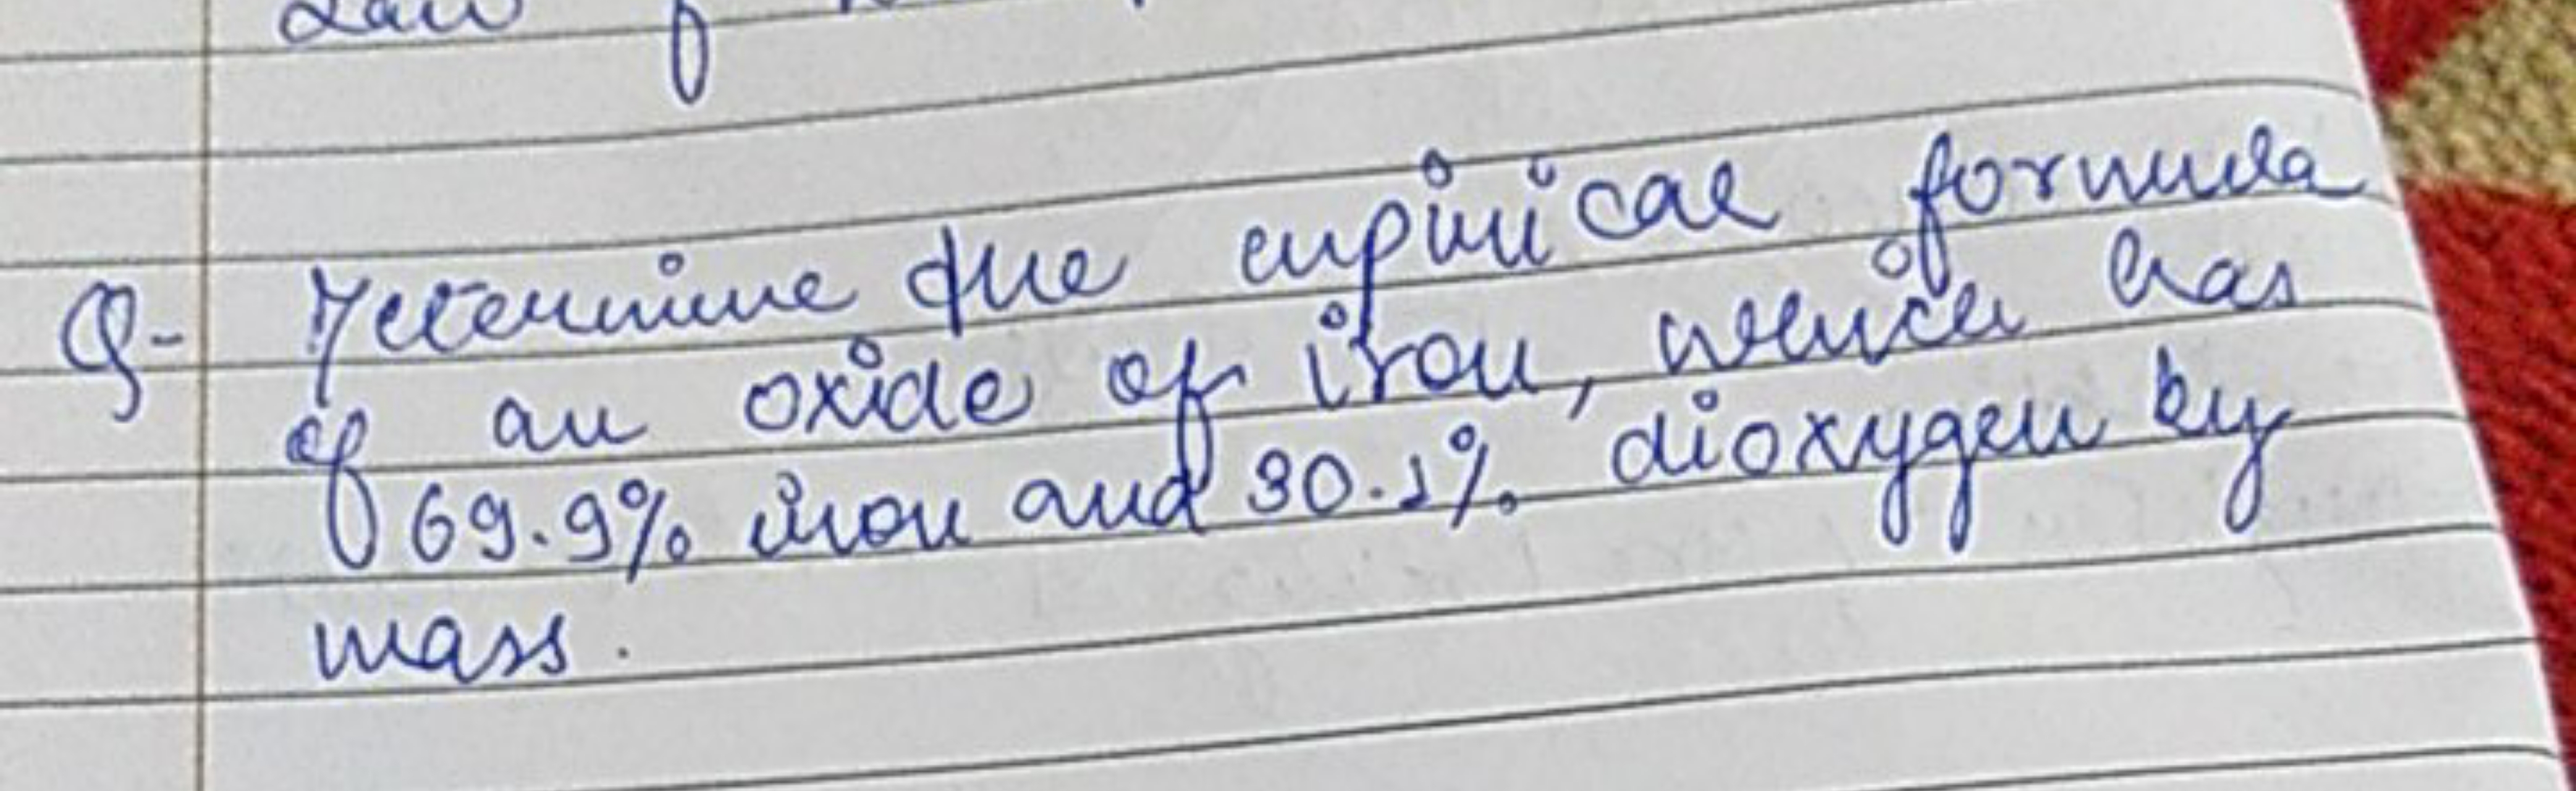 Law of
Q- Determine the empirical formula
of an oxide of iron, which has
69.9% iron and 30.1% dioxygen by
mass.